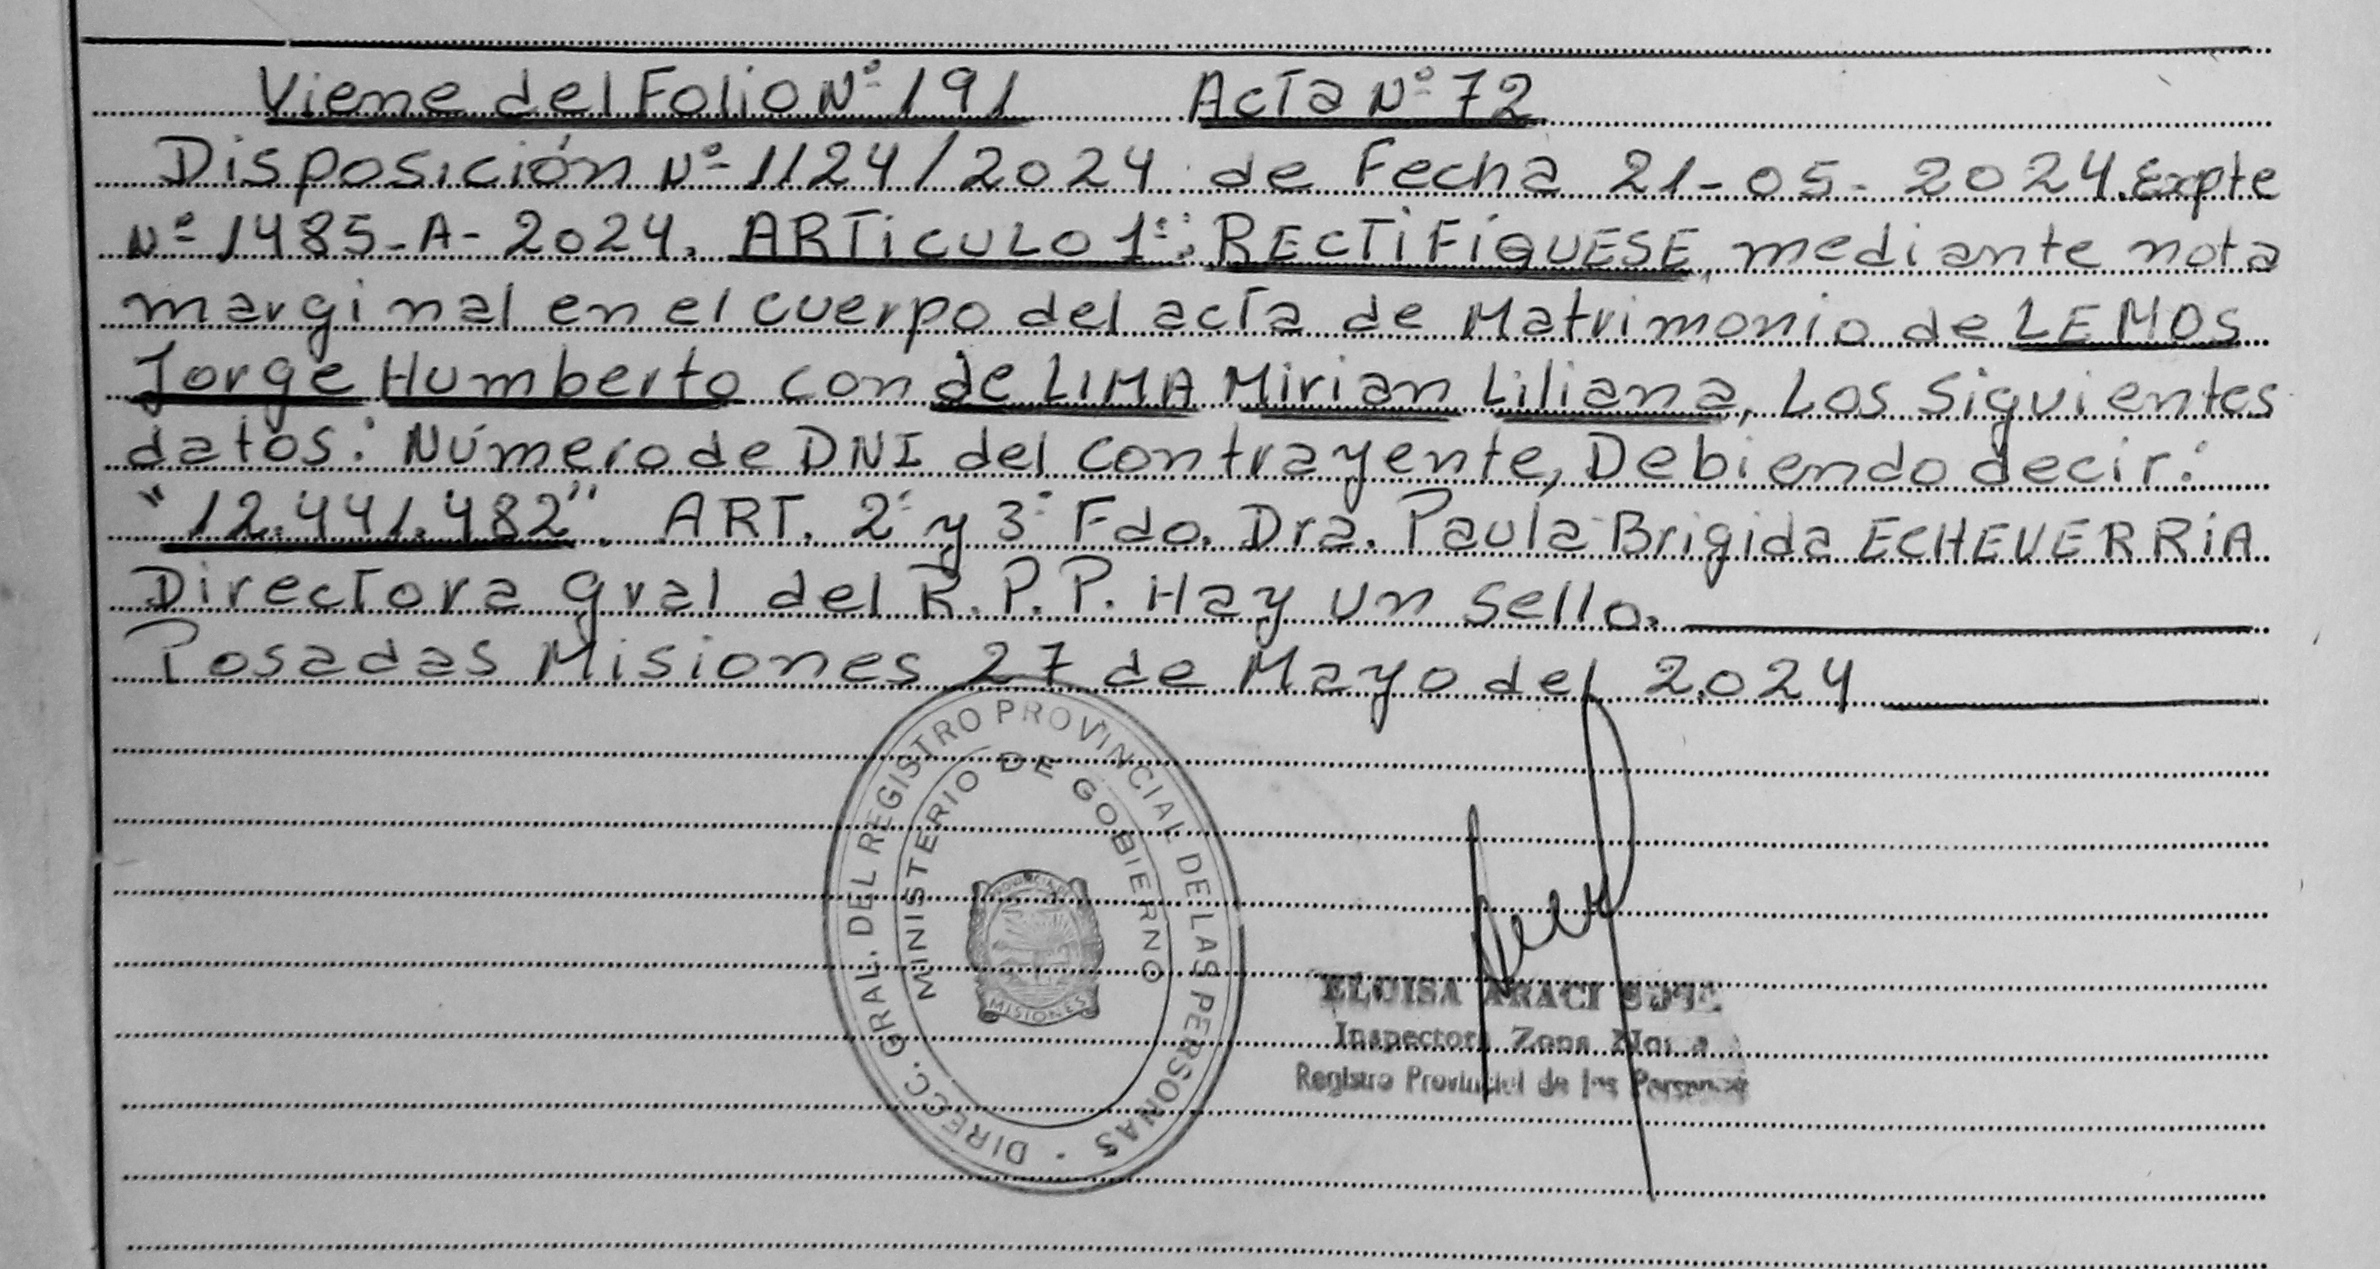 Viene del Folio Nº 191 Acta Nº 72
Disposición Nº 1124/2024 de Fecha 21-05-2024. Expte
Nº 1485-A-2024. ARTiCULO 1º: RECTiFíQUESE, mediante nota
marginal en el cuerpo del acta de Matrimonio de LEMOS
Jorge Humberto con de LIMA Mirian Liliana, Los Siguientes
datos: Número de DNI del Contrayente, Debiendo decir:
"12.441.482". ART. 2º y 3º Fdo. Dra. Paula Brigida ECHEVERRiA
Directora gral del R.P.P. Hay un sello.
Posadas Misiones 27 de Mayo del 2.024
DIRECC. GRAL. DEL REGISTRO PROVINCIAL DE LAS PERSONAS
MINISTERIO DE GOBIERNO
PROVINCIA DE
MISIONES
ELOISA ARACI
Inspectora Zona
Registro Provincial de las Personas